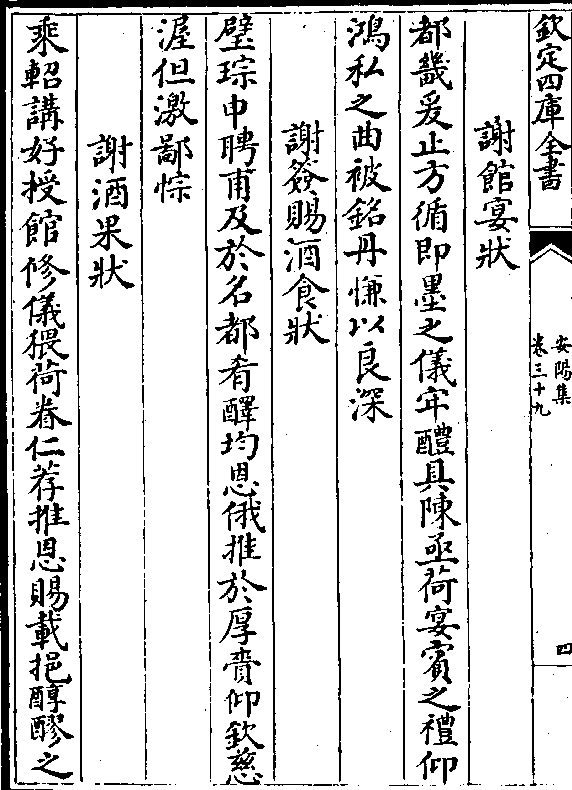 欽定四庫全書
安陽集
卷三十九
四
謝館宴狀
都畿爰止方循即墨之儀牢醴具陳亟荷宴賓之禮仰
鴻私之曲被銘丹慊以良深
謝簽賜酒食狀
璧琮申聘甫及於名都肴醳均恩俄推於厚賚仰欽慈
渥但激鄙悰
謝酒果狀
乘軺講好授館修儀猥荷眷仁荐推恩賜載挹醇醪之